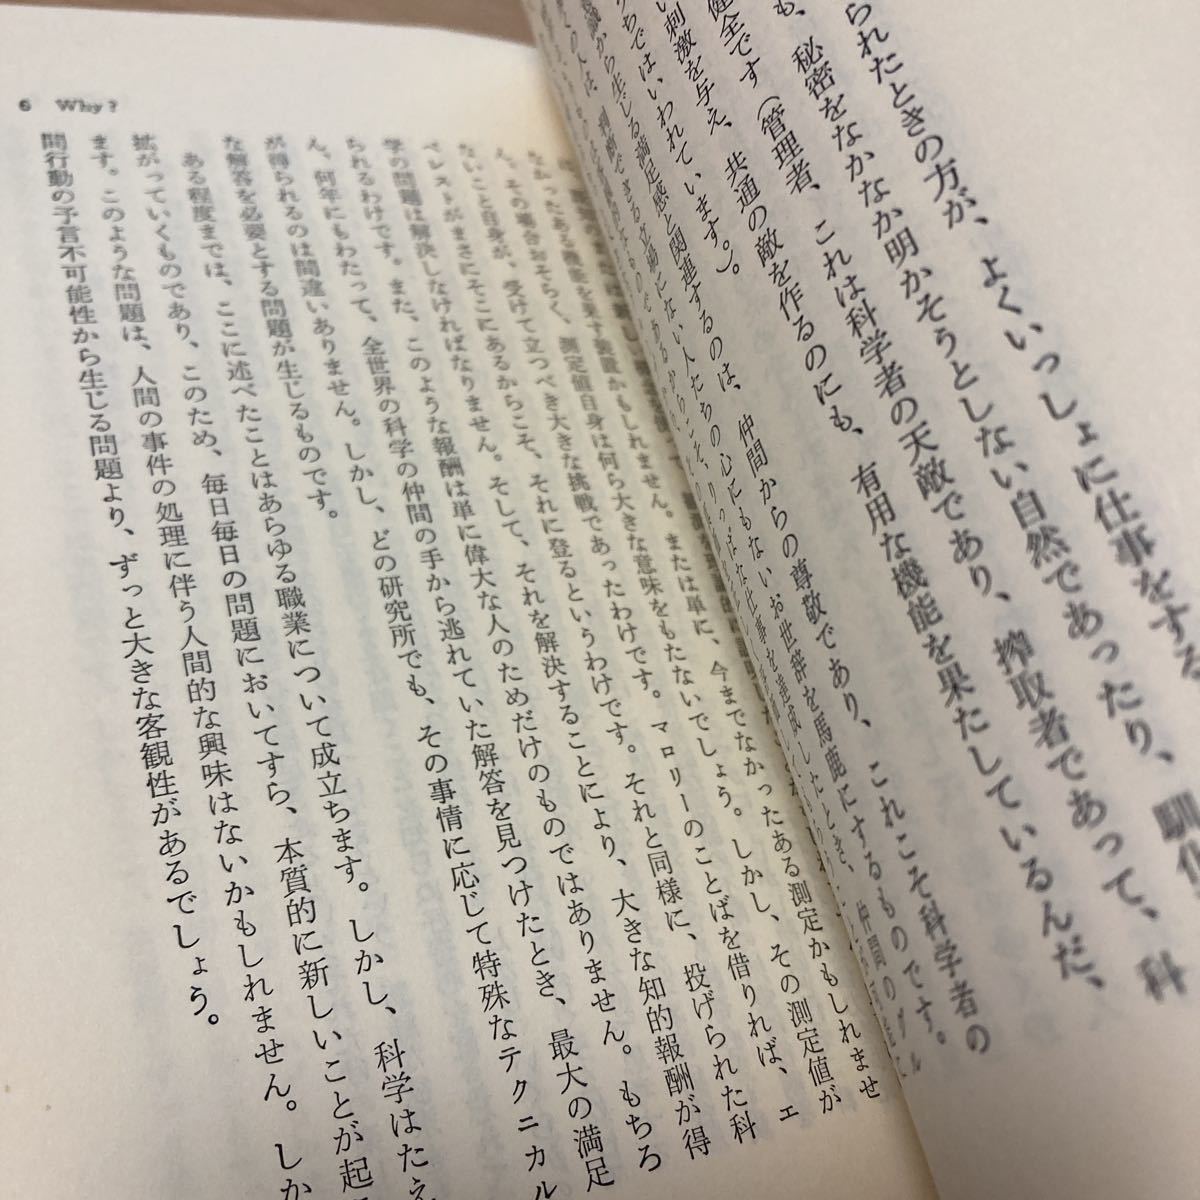 られたときの方が、よくいっしょに仕事をする。
も、秘密をなかなか明かそうとしない自然であったり、馴化
健全です（管理者、これは科学者の天敵であり、搾取者であって、科
い刺激を与え、共通の敵を作るのにも、有用な機能を果たしているんだ、
ちではいわれています。）。
識から生じる満足感と関連するのは、仲間からの尊敬であり、これこそ科学者の
その人は、判断できる立場にない人たちの心にもないお世辞を馬鹿にするものです。
6 Why?
なかったある機能を果す装置かもしれません。または単に、今までなかったある測定かもしれませ
ん。その場合おそらく、測定値自身は何ら大きな意味をもたないでしょう。しかし、その測定値が
ないこと自身が、受けて立つべき大きな挑戦であったわけです。マロリーのことばを借りれば、エ
ベレストがまさにそこにあるからこそ、それに登るというわけです。それと同様に、投げられた科
学の問題は解決しなければなりません。そして、それを解決することにより、大きな知的報酬が得
られるわけです。また、このような報酬は単に偉大な人のためだけのものではありません。もちろ
ん、何年にもわたって、全世界の科学の仲間の手から逃れていた解答を見つけたとき、最大の満足
が得られるのは間違いありません。しかし、どの研究所でも、その事情に応じて特殊なテクニカル
な解答を必要とする問題が生じるものです。
ある程度までは、ここに述べたことはあらゆる職業について成立ちます。しかし、科学はたえ
拡がっていくものであり、このため、毎日毎日の問題においてすら、本質的に新しいことが起
ます。このような問題は、人間の事件の処理に伴う人間的な興味はないかもしれません。しか
間行動の予言不可能性から生じる問題より、ずっと大きな客観性があるでしょう。